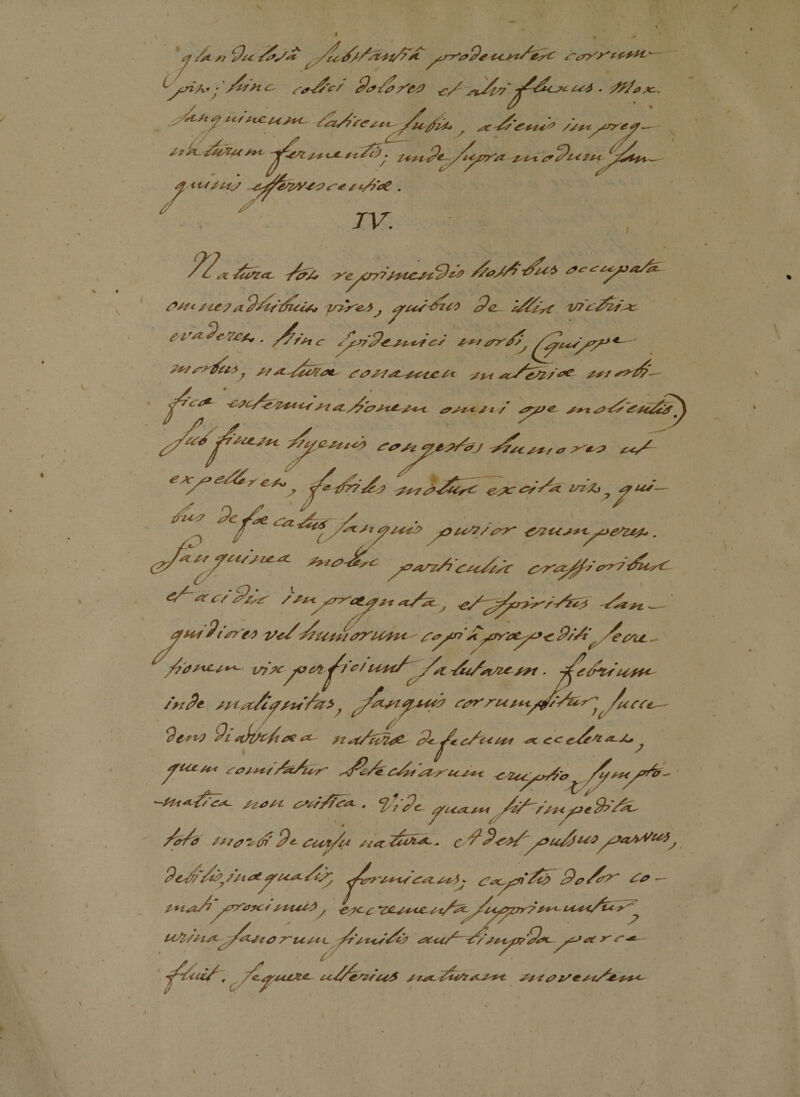 glandulosâ substantiâ prodeunter corrum-
pit; hinc colici dolores et alvi fluxus. Mox
sanguineum laticem subit, alienis impreg-
naturum fermentis; unde supra modum san-
guinis effervescentiæ.
IV.
Natura tot reprimendis hostibus occupata
omnes adhibuit vires, quibus de illis victrix
evaderet. Hinc epidemici morbi (quippe
morbus, natura conamen in materiæ morbi-
ficæ exterminationem omni ope molientis)
sub finem hyemis congestos humores ut
expelleret, febriles motus excitavit, qui-
bus defæcatus sanguis purior erumperet.
Sanguinea moles particulis crassioribus
et acidis impraegnata, et spiritus lan-
guidiores vel humorum copiâ præpediti secre-
tionem vix perficiunt salutarem. febrium
inde malignitas, sanguis corrumpitur, succe-
dens diarrhœa naturæ defectum accelerat,
quem comitatur petechiarum eruptio sympto-
matica non critica. Vide quam sit impedita
toto morbi de cursu natura. adest pulsus parvus,
debilis, inæqualis, formicans; capitis dolor co-
mati proximus, excrementa supprimuntur,
urina sanorum similis aut limpida parce
fluit, sequere ulterius naturam moventem